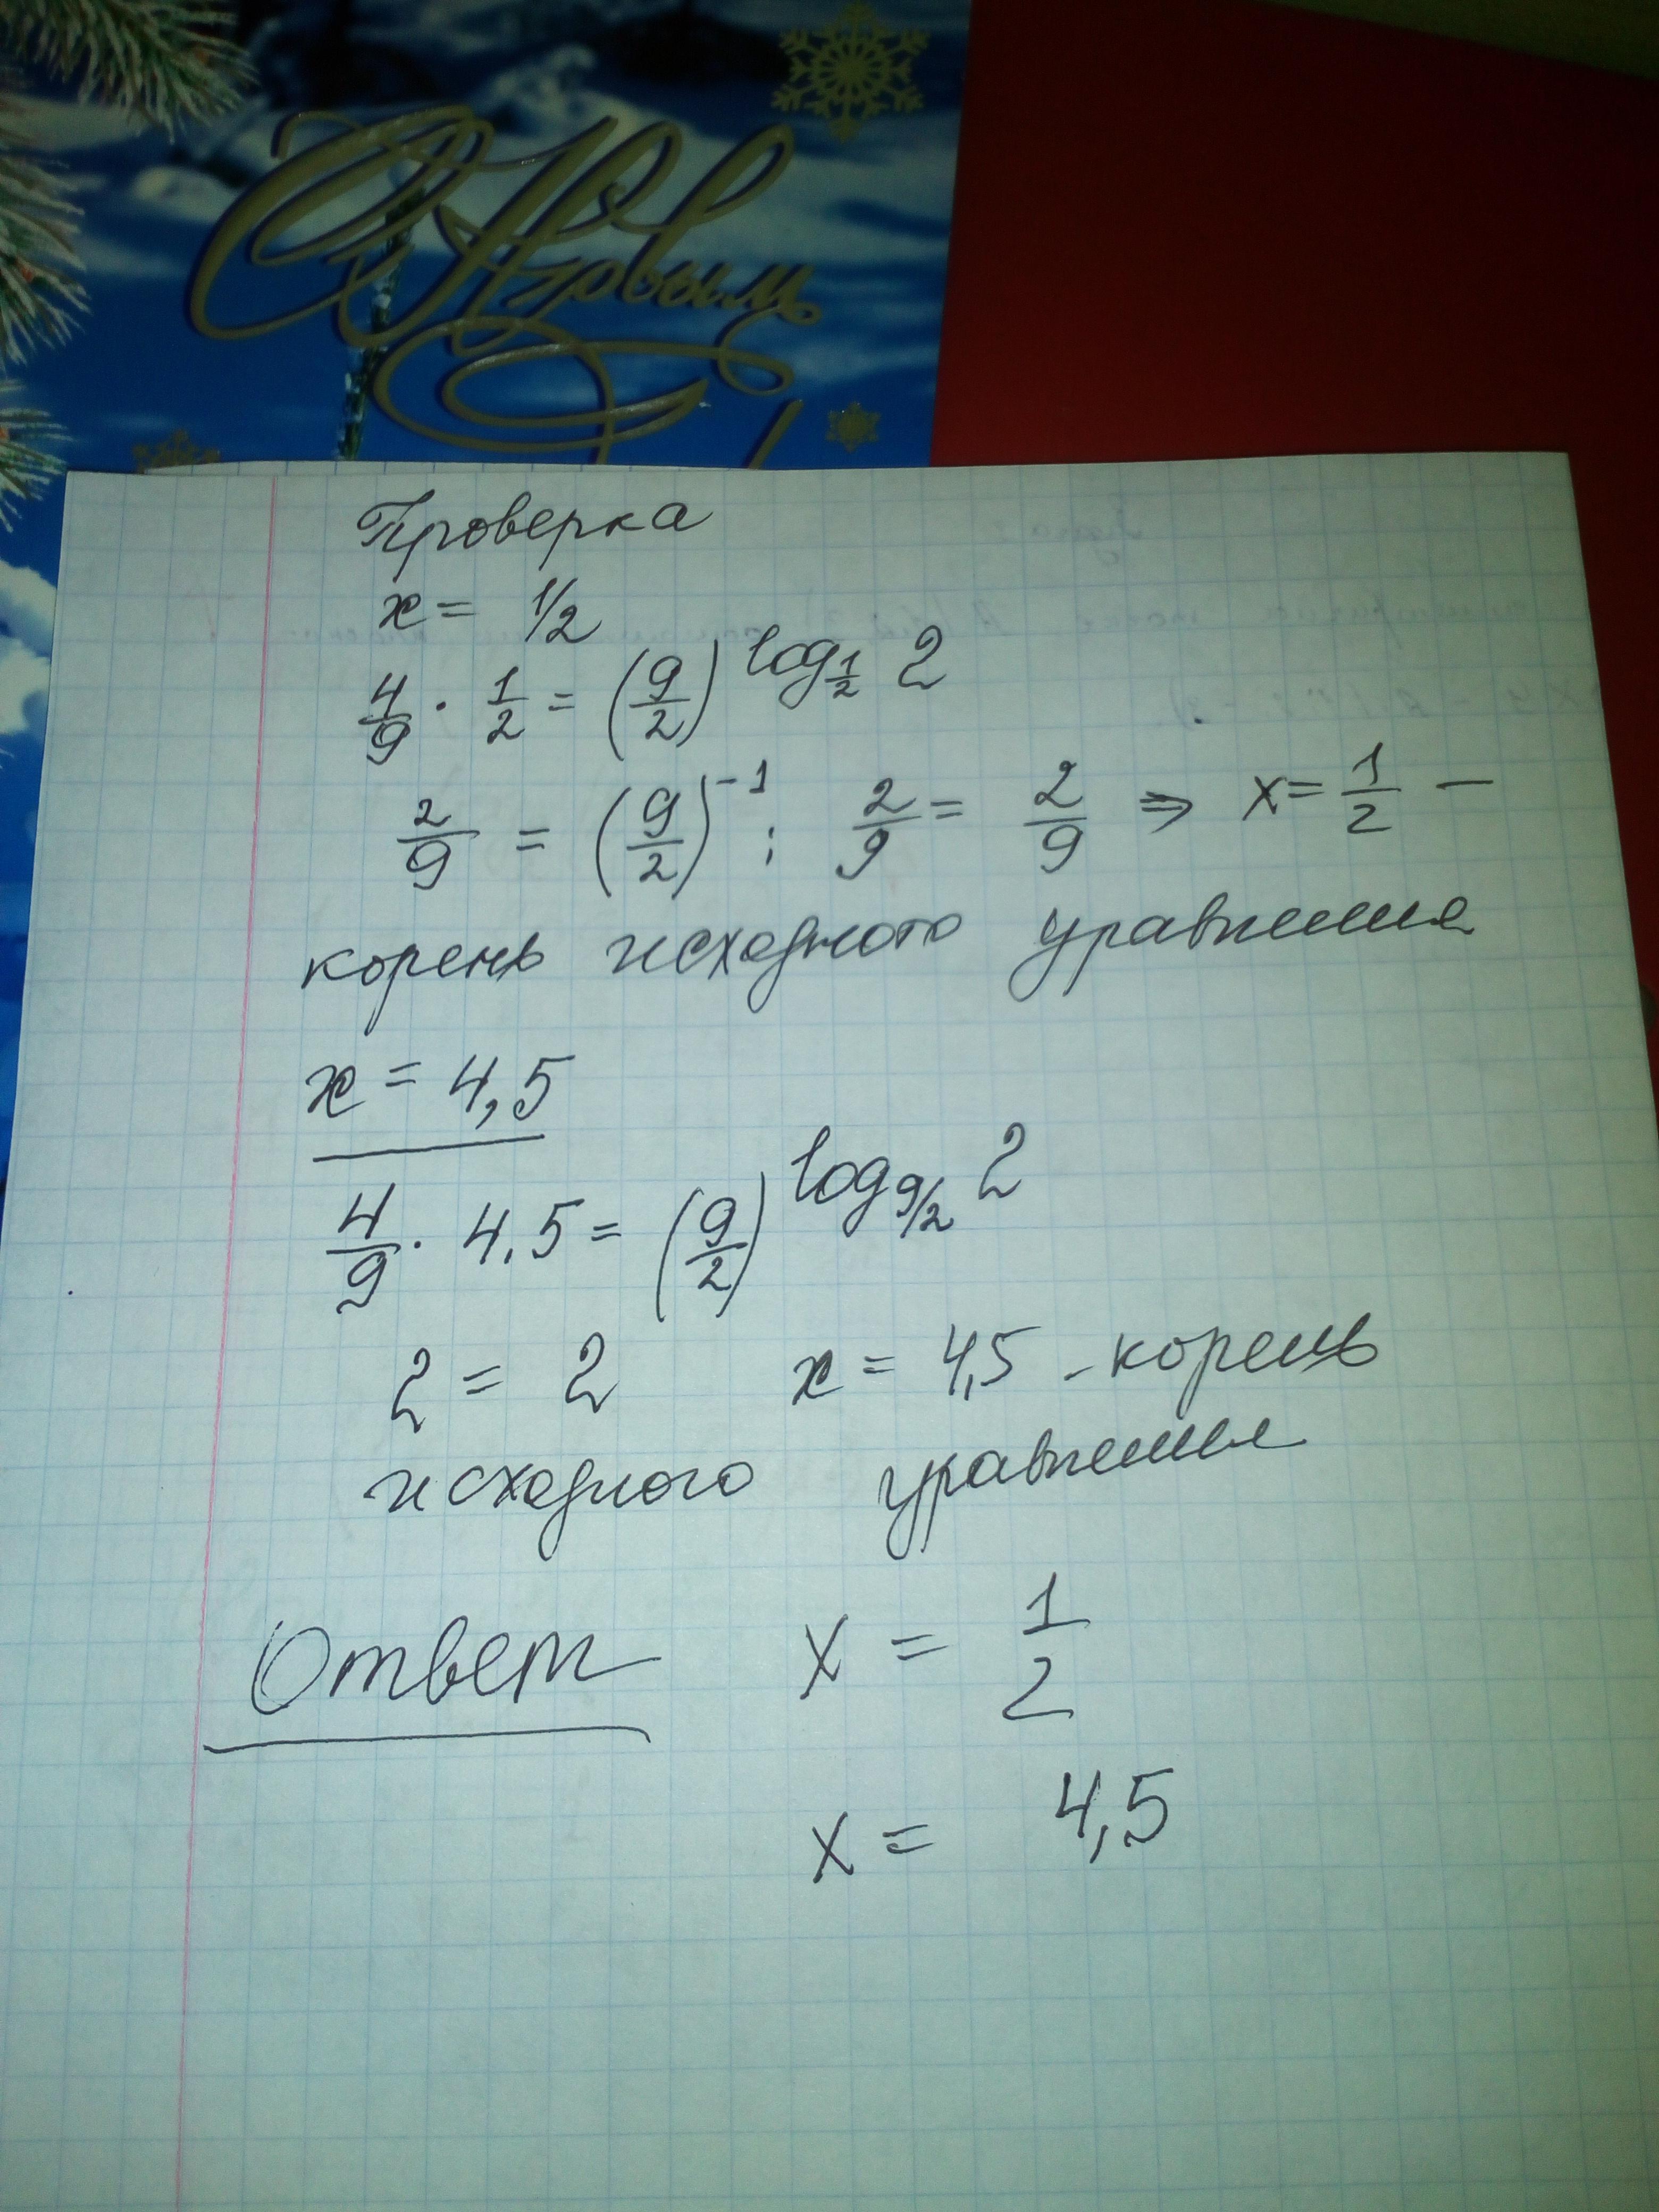 С Новым
Проверка
x = 1/2
4/9 · 1/2 = (9/2)^log_{1/2} 2
2/9 = (9/2)^-1 ; 2/9 = 2/9 ⇒ x = 1/2 —
корень исходного уравнения
x = 4,5
4/9 · 4,5 = (9/2)^log_{9/2} 2
2 = 2 x = 4,5 - корень
исходного уравнения
Ответ x = 1/2
x = 4,5